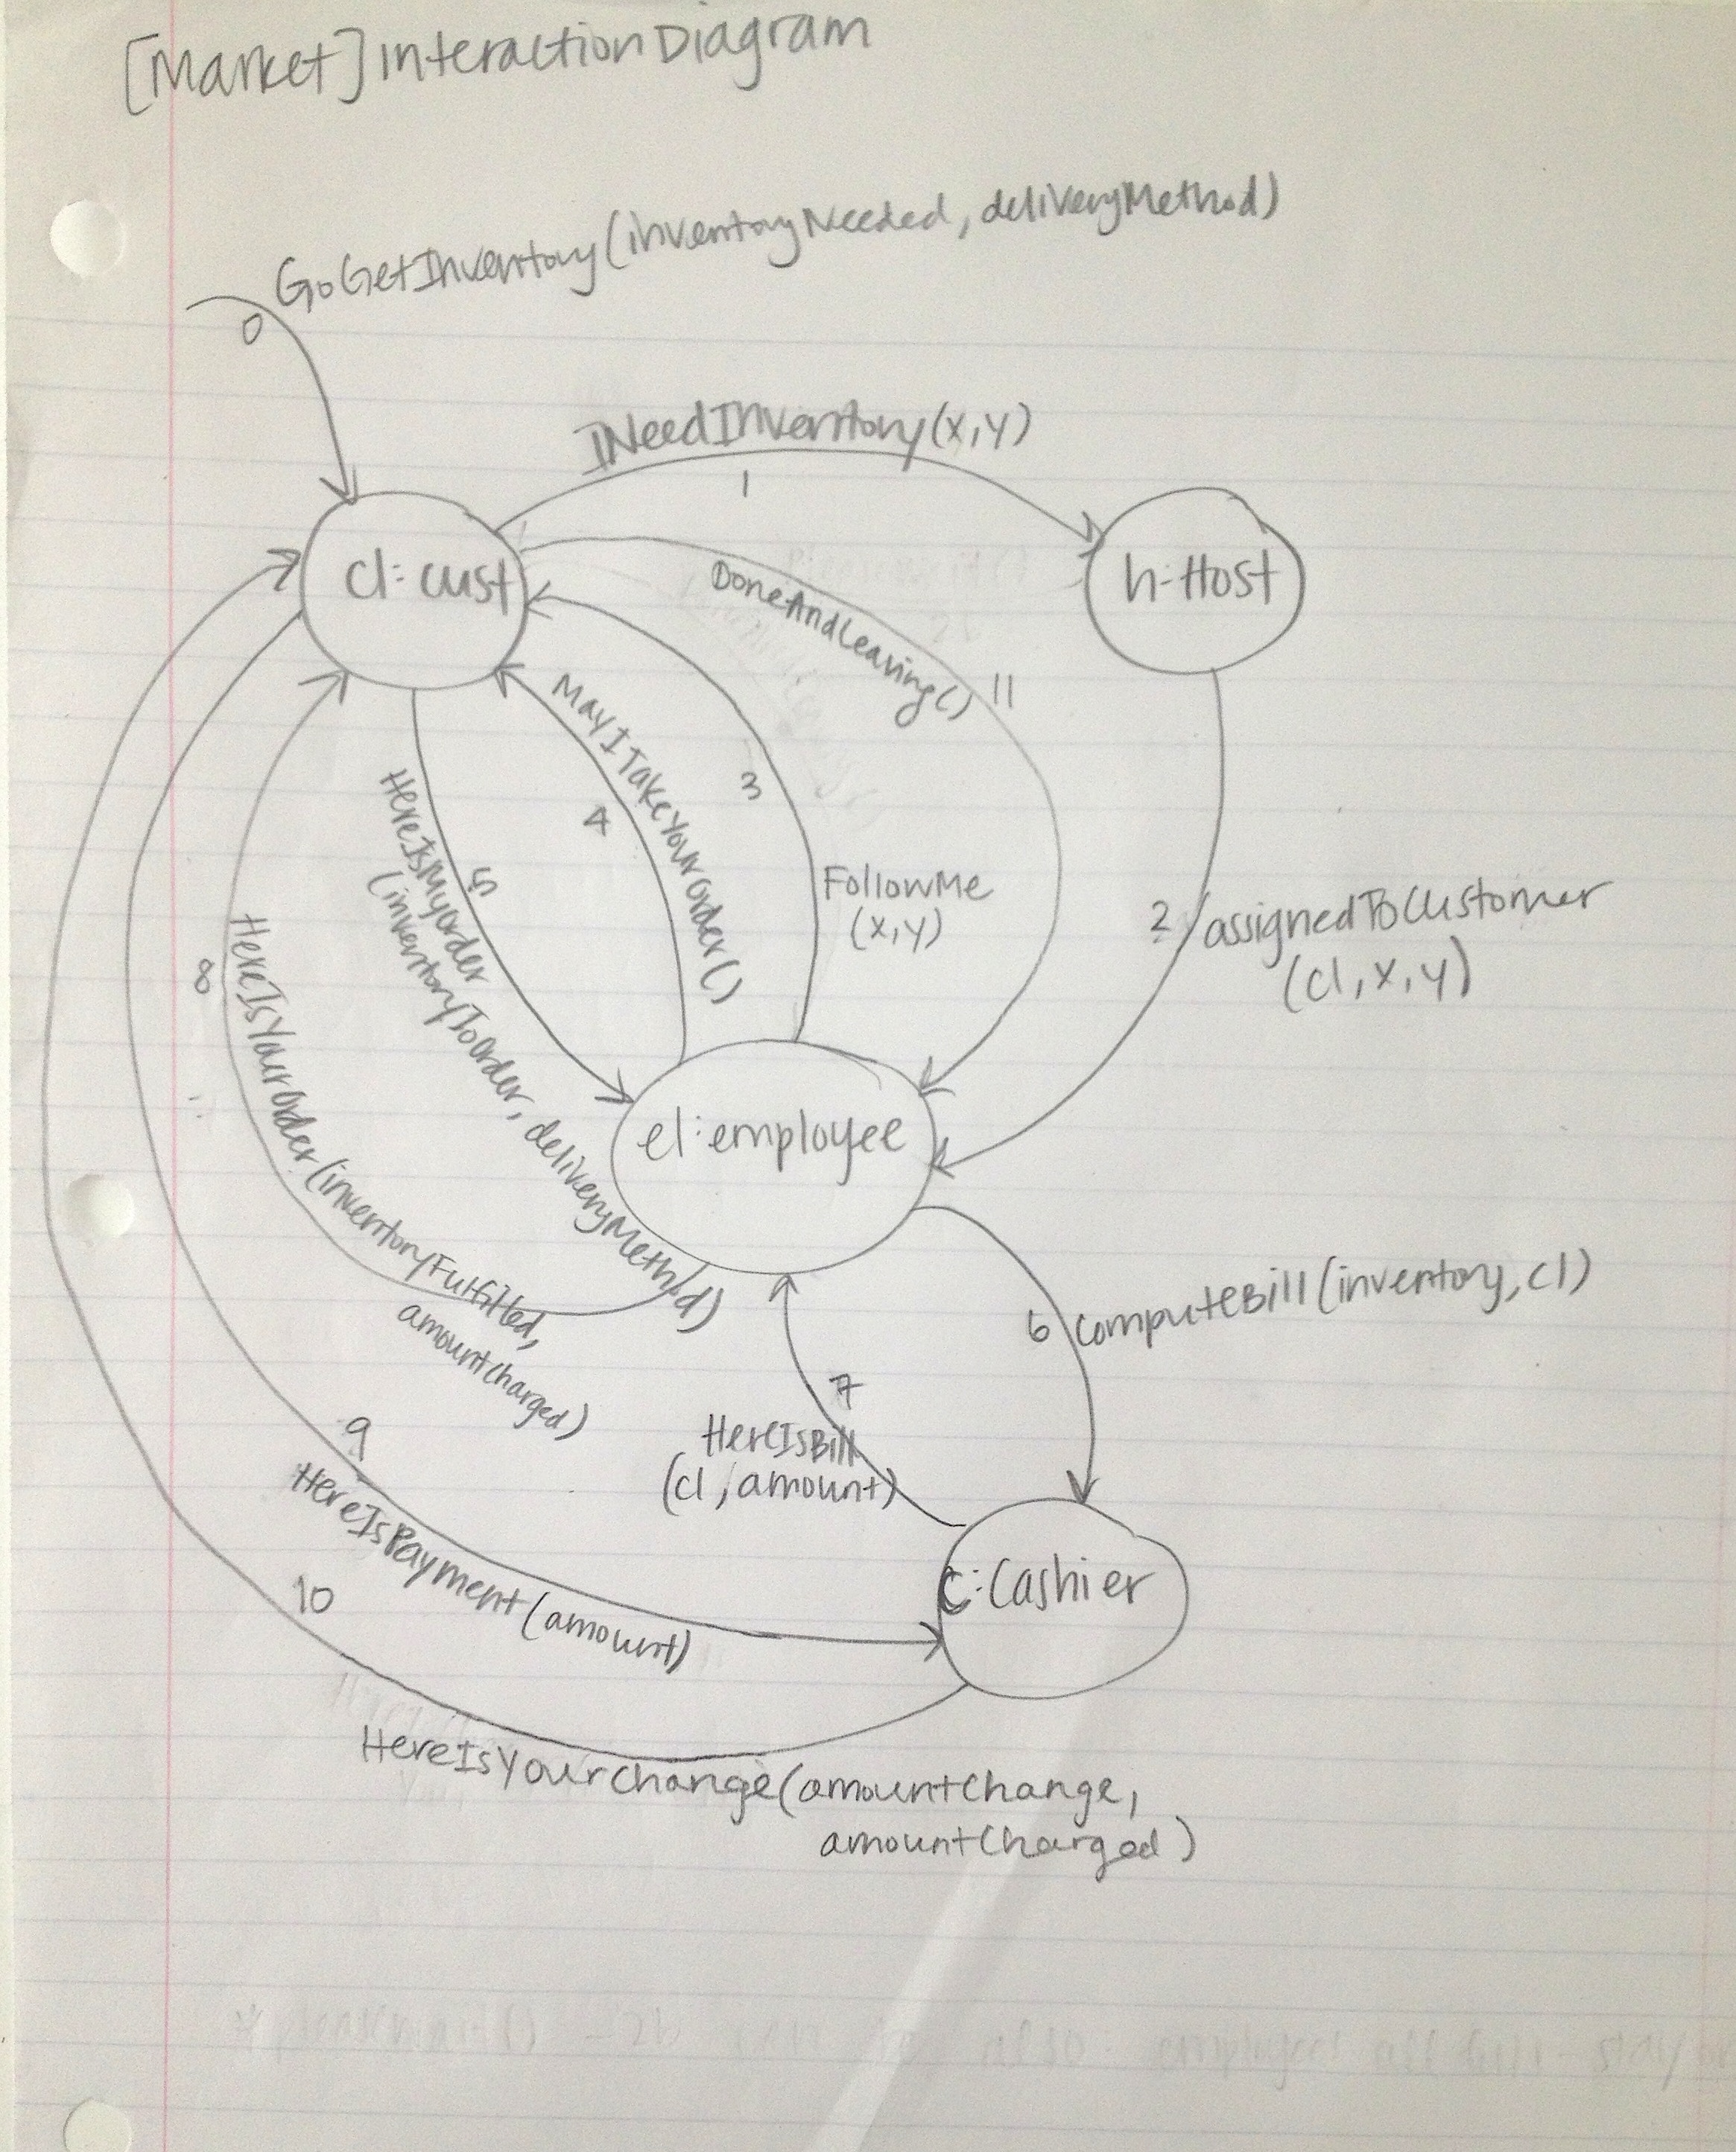 [Market] Interaction Diagram
GoGetInventory(inventoryNeeded, deliveryMethod)
0
INeedInventory(x,y)
1
c1: cust
h: Host
DoneAndLeaving()
11
MayITakeYourOrder()
4
3
FollowMe
(x,y)
HereIsMyOrder
(inventoryToOrder, deliveryMethod)
5
2
assignedToCustomer
(c1, x, y)
8
HereIsYourOrder(inventoryFulfilled,
amountCharged)
e1: employee
6
computeBill(inventory, c1)
7
HereIsBill
(c1, amount)
9
HereIsPayment(amount)
c: Cashier
10
HereIsYourChange(amountChange,
amountCharged)